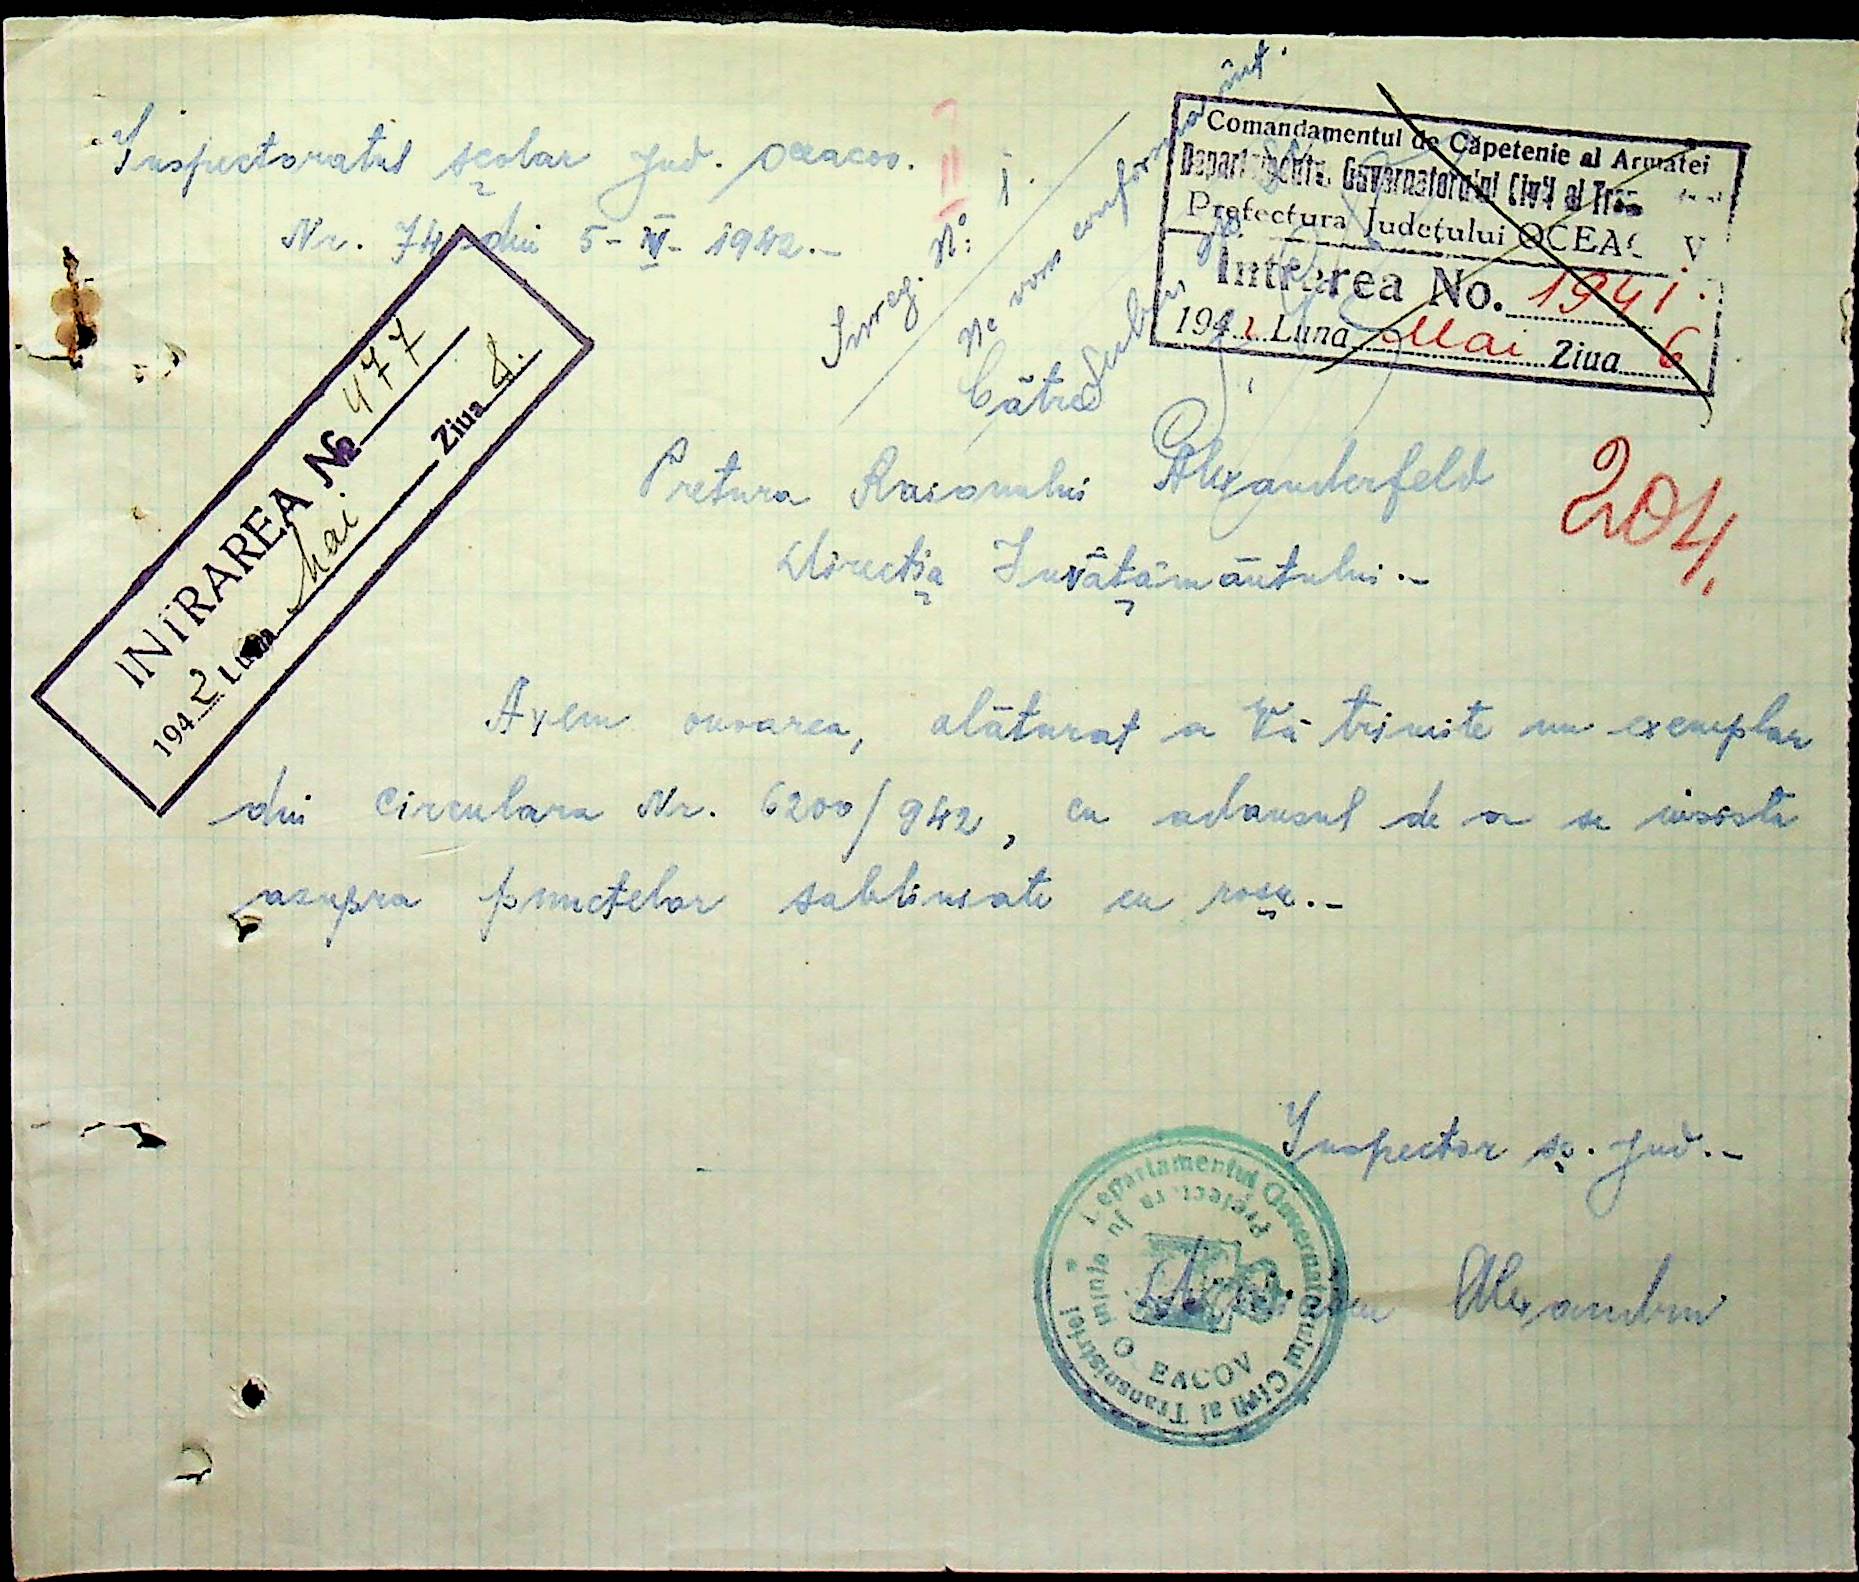 Inspectoratul școlar Jud. Oceacov.
Nr. 74 din 5-IV-1942.-
Inreg. No:
Ne vom conforma int.
Comandamentul de Căpetenie al Armatei
Departamentul Guvernatorului Civil al Trans
Prefectura Județului OCEAC V
Intrarea No. 1941
1942 Luna Mai Ziua 6
INTRAREA No 477
1942 Luna Mai Ziua 8.
Către
Pretura Raionului Alexanderfeld
Direcția Învățământului.-
204.
Avem onoarea, alăturat a Vă trimite un exemplar
din circulara Nr. 6200/942, cu adausul de a se insista
asupra punctelor subliniate cu roșu.-
Inspector șc. Jud.-
Alexandru
Departamentul Guvernatorului Civil al Transnistriei
Prefectura Ju
O EACOV